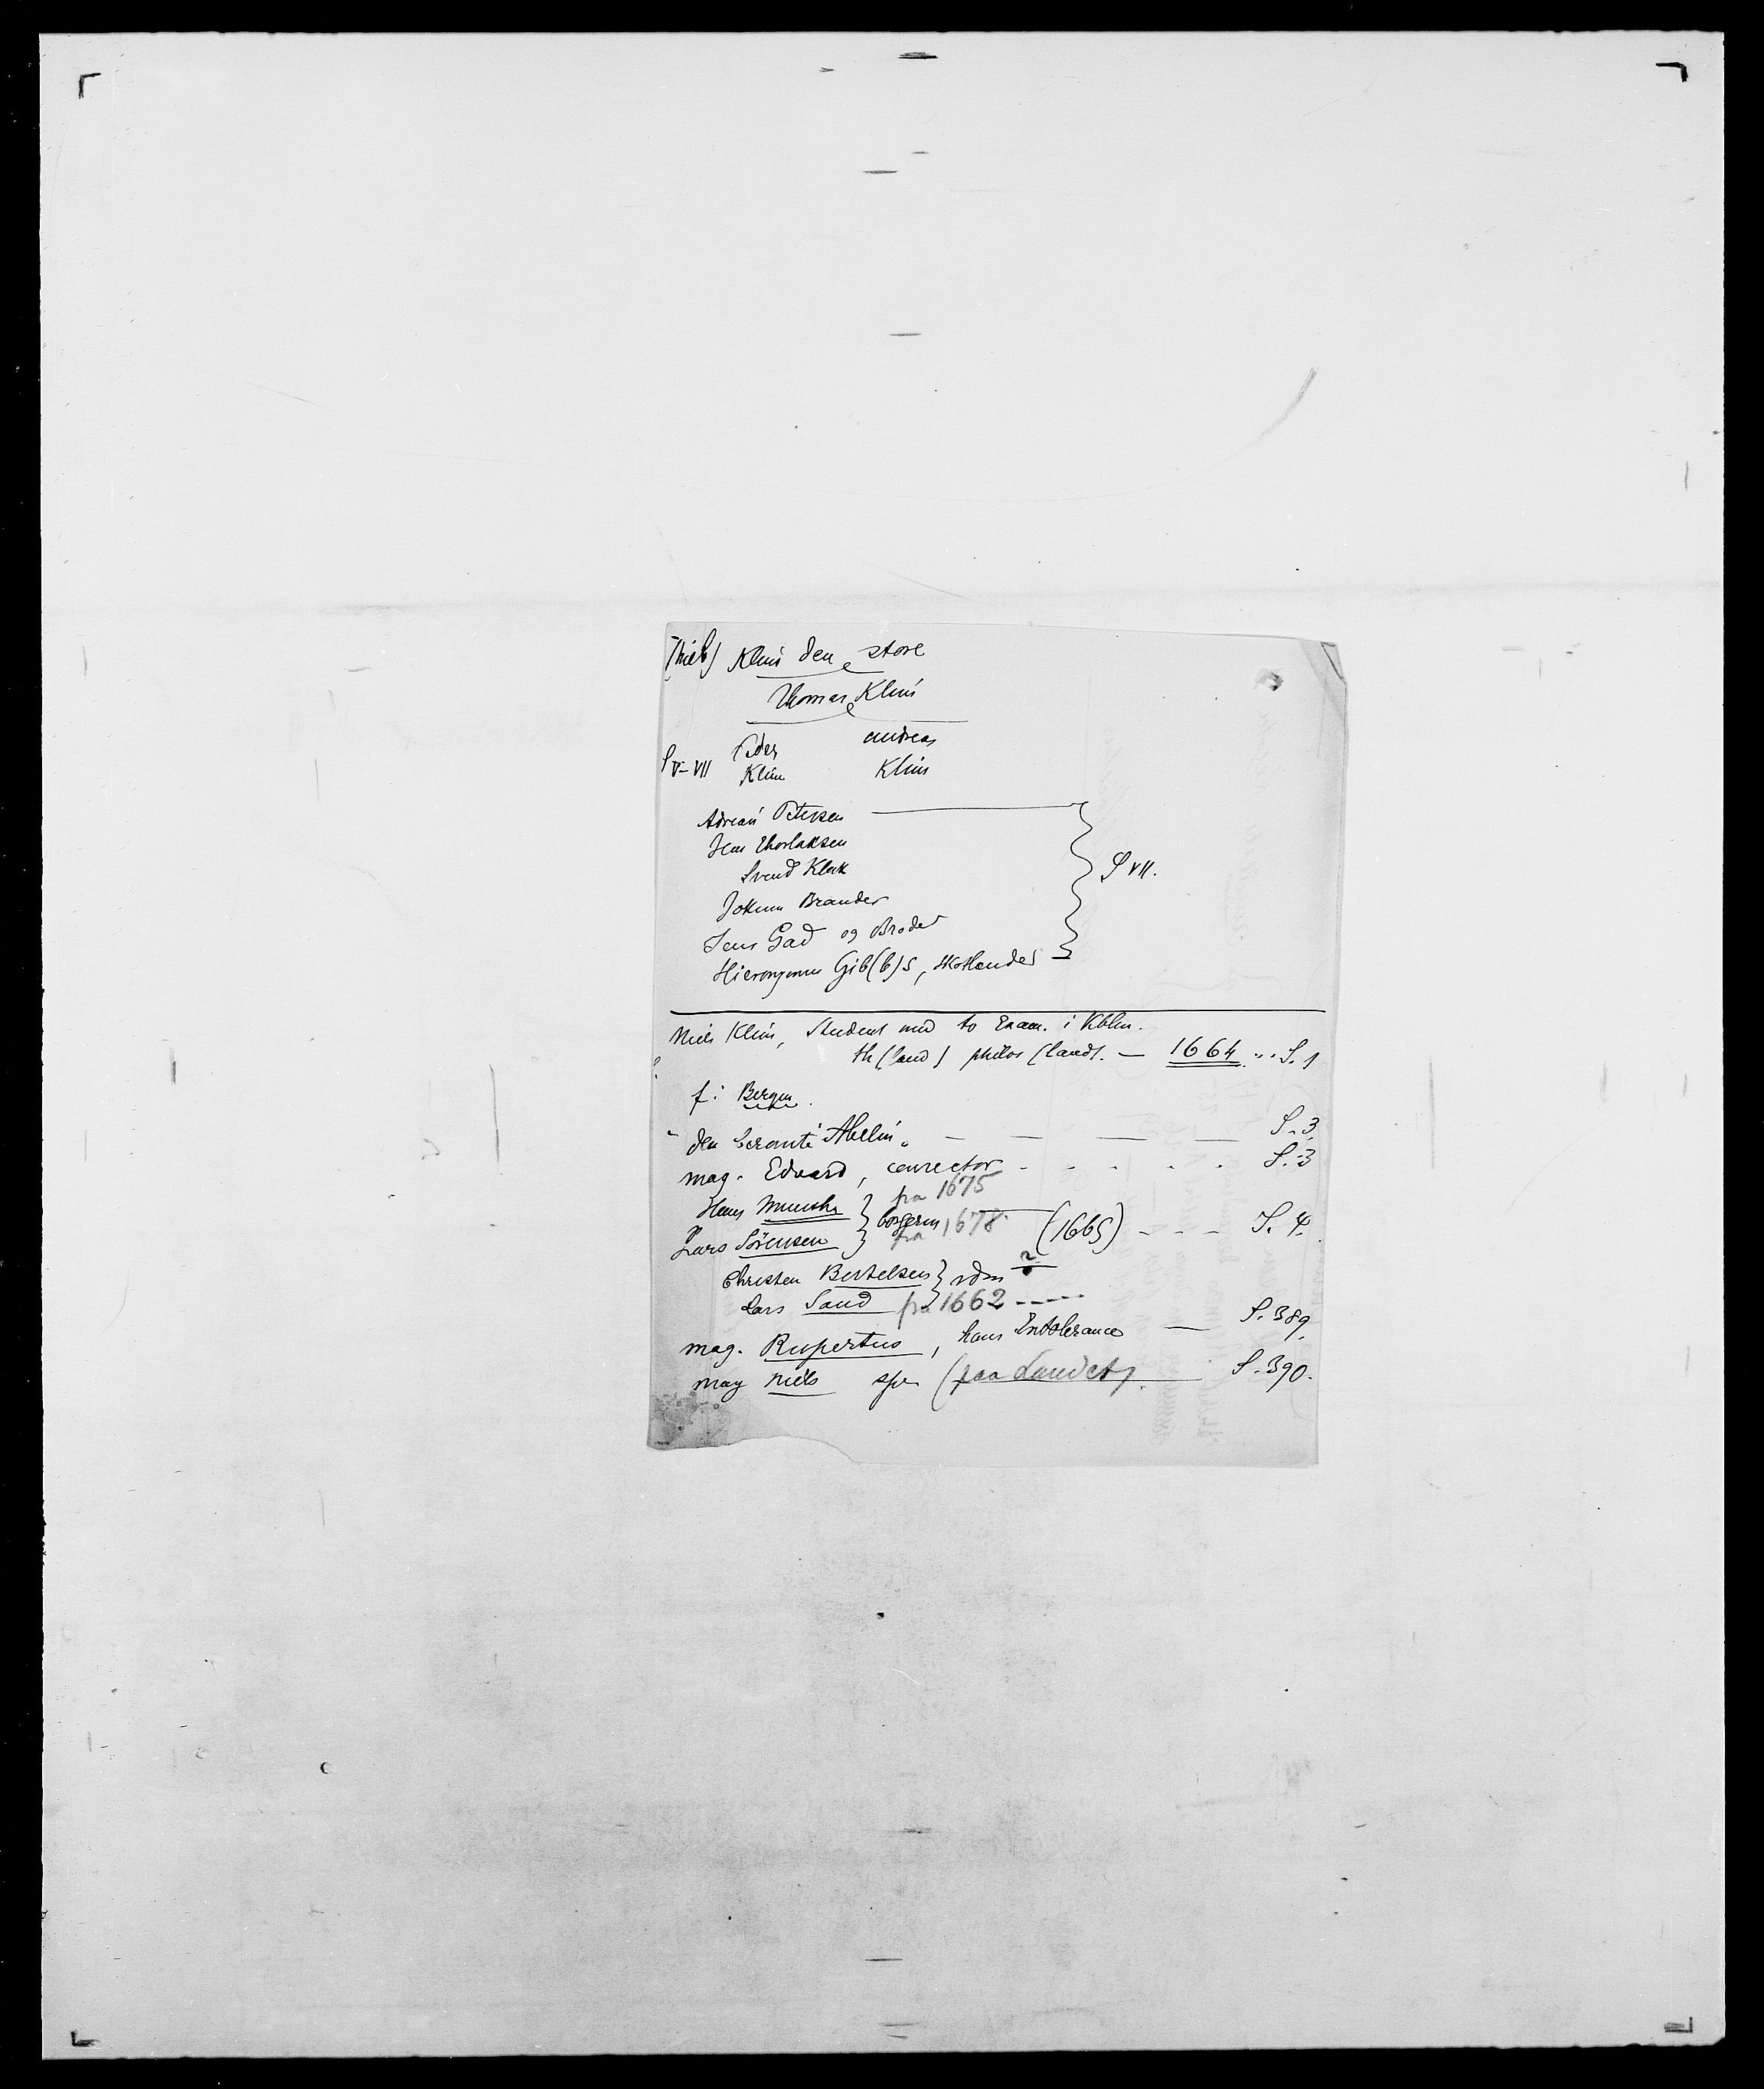 (Niels) Klim den store
Thomas Klim
Peder Andreas
S V-VII Klim Klim
Adrian Petersen
Jens Thorlaksen
Svend Klak
Jokum Brander
S VII.
Jens Gad og Broder
Hieronymus Gib(b)s, skotlender
Niels Klim, Student med to Exam. i Kbhn.
th (laud) philos (laud). — 1664 ... S. 1
f: Bergen.
den berømte Abelin. — — — — S. 3
mag. Edvard, conrector - - - - - S. 3
fra 1675
Hans Munthe
borgerm (1665) - - - S. 4.
Lars Sörensen fra 1678
Christen Bertelsen rdm ?
Lars Sand fra 1662 -----
mag. Rupertus, hans Intolerance — S. 389.
mag Niels spr (paa Landet). S. 390.